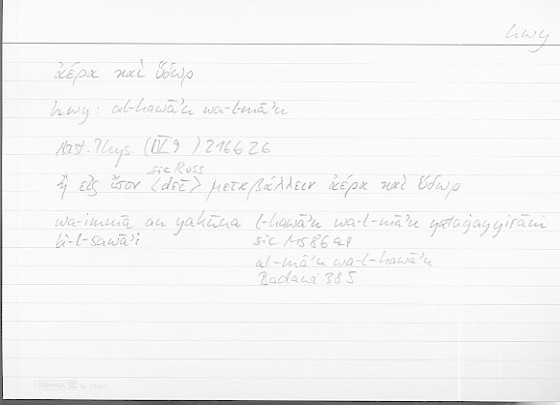 hwy
ἀέρα καὶ ὕδωρ
hwy: al-hawāʾu wa-l-māʾu
Arist. Phys. (IV 9) 216b26
sic Ross
ἢ εἰς ἴσον ⟨δεῖ⟩ μεταβάλλειν ἀέρα καὶ ὕδωρ
wa-immā an yakūna l-hawāʾu wa-l-māʾu yataġayyirāni
bi-l-sawāʾi
sic
al-māʾu wa-l-hawāʾu
Badawi 385